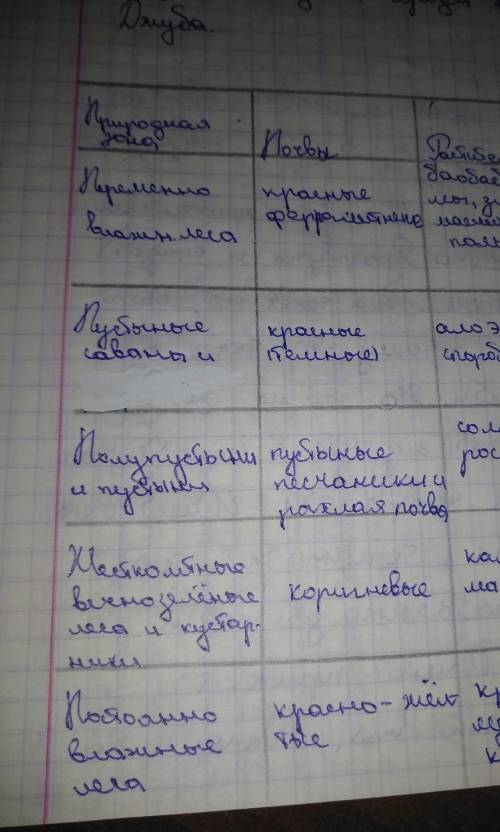 Джуба.
Природная
зона
Почвы
Переменно
влажн. леса
красные
ферралитные
баобаб
паль
Пустынные
саваны и
красные
(темные)
алоэ
Полупустыни
и пустыни
пустынные
песчаники и
рыхлая почва
сол
рос
Жестколистные
вечнозелёные
леса и кустар-
ники
коричневые
ма
Постоянно
влажные
леса
красно-жёл
тые
кр
к